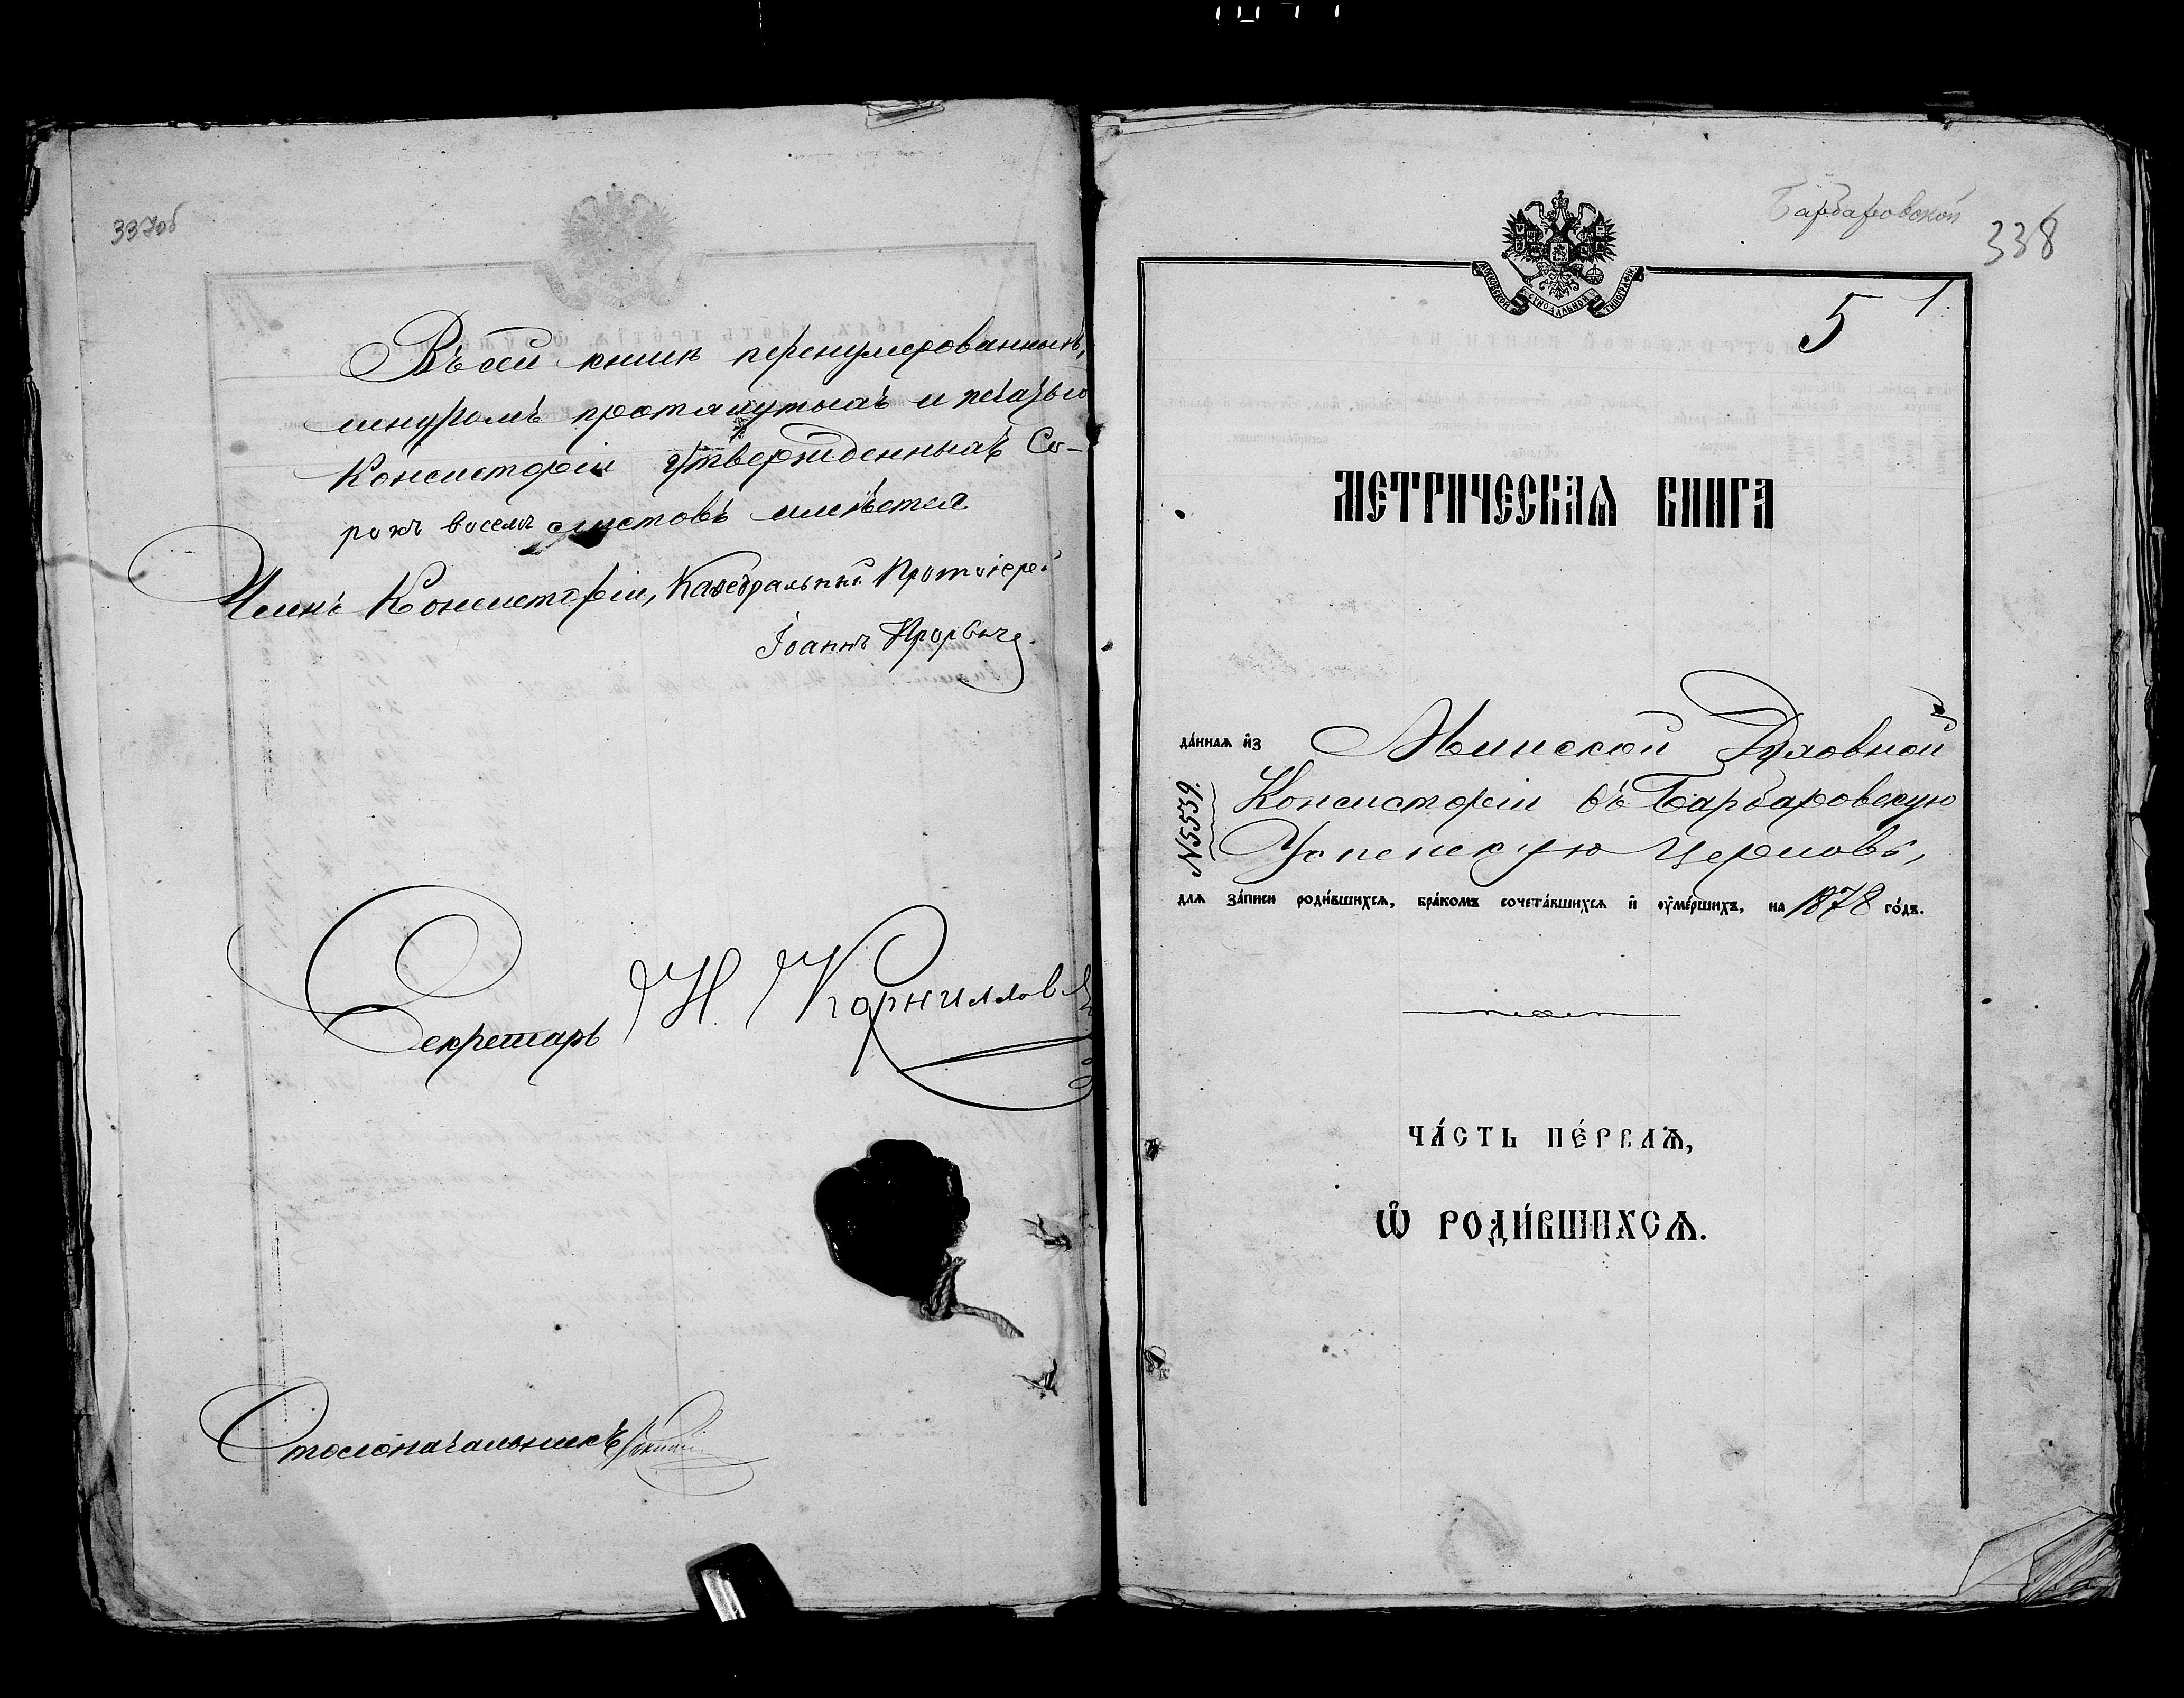 337об
Въ сей книгѣ перенумерованныхъ,
шнуромъ протянутыхъ и печатью
Консисторіи утвержденныхъ Со-
рокъ восемь листовъ имѣется
Членъ Консисторіи, Каѳедральный Протоіерей
Іоаннъ
Секретарь Н. Корниловъ
Столоначальникъ
Барбаровской
338
МОСКОВСКОЙ СѴНОДАЛЬНОЙ ТИПОГРАФІИ
5 1.
МЕТРИЧЕСКАѦ КНИГА
да́ннаѧ и҆з Минской Духовной
№5559.
Консисторіи въ Барбаровскую
Успенскую Церковь,
для за́писи роди́вшихсѧ, бра́комъ сочета́вшихсѧ и҆ ᲂу҆ме́ршихъ, на 1878 го́дъ.
ЧА́СТЬ ПЕ́РВАѦ,
Ѽ РОДИ́ВШИХСѦ.